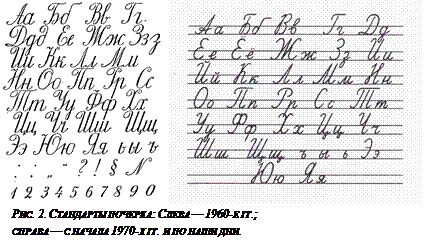 Аа Бб Вв Гг
Ддд Ее Жж Ззз
Ии Кк Лл Мм
Нн Оо Пп Рр Сс
Тт Уу Фф Хх
Цц Чч Шш Щщ
Ээ Юю Яя ь ы ъ
: . „ “ ? ! § №
1 2 3 4 5 6 7 8 9 0
Аа Бб Вв Гг Дд
Ее Ёё Жж Зз Ии
Йй Кк Лл Мм Нн
Оо Пп Рр Сс Тт
Уу Фф Хх Цц Чч
Шш Щщ ъ ы ь Ээ
Юю Яя
Рис. 2. Стандарты почерка: Слева — 1960-е гг.;
справа — с начала 1970-х гг. и по наши дни.